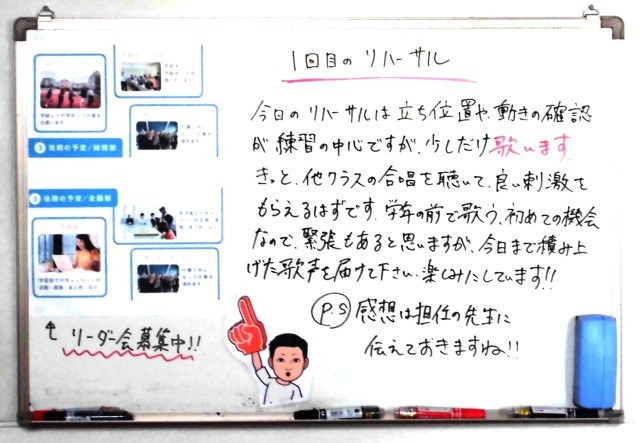 1回目のリハーサル
今日のリハーサルは立ち位置や動きの確認
が練習の中心ですが、少しだけ歌います。
きっと、他クラスの合唱を聴いて、良い刺激を
もらえるはずです。学年の前で歌う、初めての機会
なので、緊張もあると思いますが、今日まで積み上
げた歌声を届けて下さい。楽しみにしています!!
P.S 感想は担任の先生に
伝えておきますね!!
3 後期の予定/総務部
3 後期の予定/企画部
↑
リーダー会募集中!!